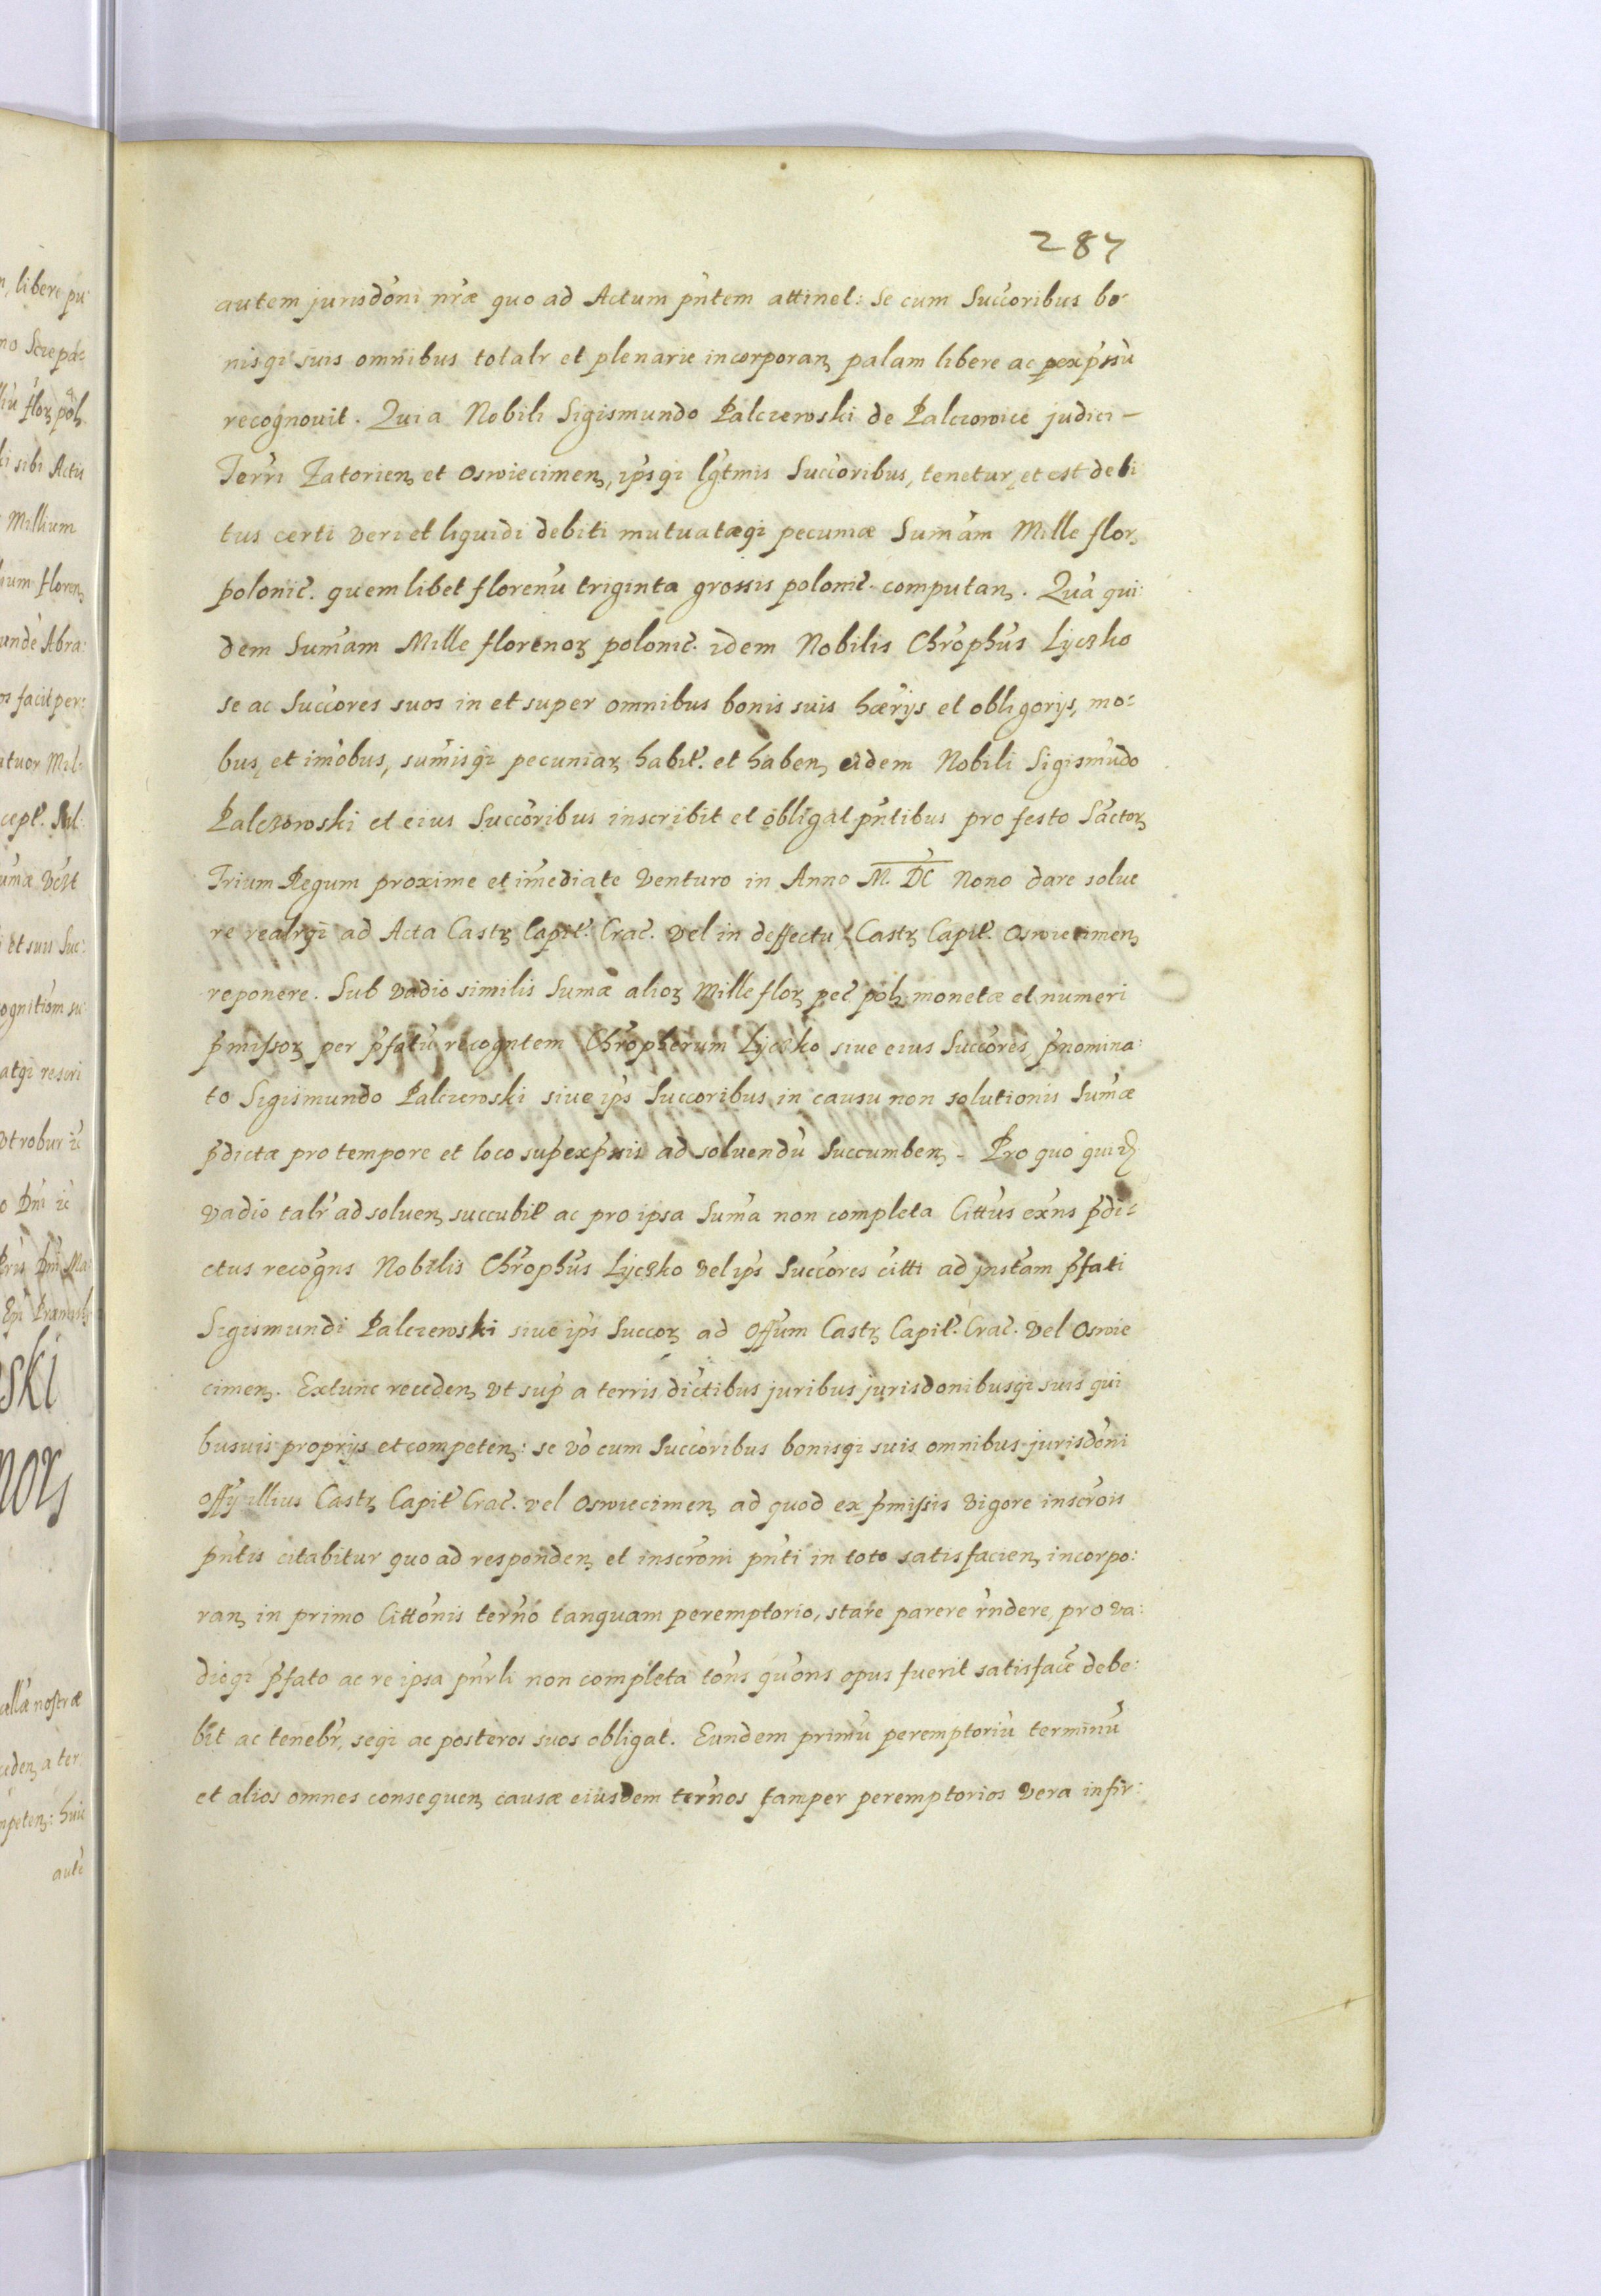 287
autem jurisdoni nræ quo ad Actum pntem attinet: Se cum Succoribus bo-
nisqi suis omnibus totalr et plenarie incorporanȝ palam libere ac pexpssu
recognovit. Quia Nobili Sigismundo Palczewski de Palczowice judici –
Terri Zatorienȝ et Oswiecimenȝ, ipsqi lgtmis Succoribus, tenetur, et est debi
tus certi veri et liquidi debiti mutuatæqi pecuniæ Sumam Mille florȝ
polonic. quemlibet florenu triginta grossis polonic. computanȝ. Qua qui:
dem Sumam Mille florenoȝ polonic. idem Nobilis Chrophus Lyczko
se ac Succores suos in et super omnibus bonis suis hærijs et obligorijs, mo:
bus, et imobus, sumisqi pecuniarȝ habit. et habenȝ eidem Nobili Sigismudo
Palczowski et eius Succoribus inscribit et obligat pntibus pro festo Sactoȝ
Trium Regum proxime et imediate venturo in Anno M. DC Nono dare solue
re realrqi ad Acta Castȝ Capit. Crac. vel in deffectu Castȝ Capit. Oswiecimenȝ
reponere. Sub vadio similis Sumæ alioȝ Mille floȝ pec polȝ monetæ et numeri
pmissoȝ per pfatu recogntem Chropherum Lyczko siue eius Succores pnomina:
to Sigismundo Palczewski siue ips Succoribus in causu non solutionis Sumæ
pdictæ pro tempore et loco supexpssis ad soluendu Succumbenȝ – Pro quo quid
vadio talr ad soluenȝ succubit ac pro ipsa Suma non completa Cittus exns pdi:
ctus recogns Nobilis Chrophus Lyczko vel ips Succores citti ad jnstam pfati
Sigismundi Palczewski siue ipsi Succoȝ ad Offum Castȝ Capit. Crac. vel Oswie
cimenȝ. Extunc recedenȝ vt sup a terris dictibus juribus jurisdonibusqi suis qui
busuis proprijs et competenȝ: se vo cum Succoribus bonisqi suis omnibus jurisdoni
Offy illius Castȝ Capit Crac. vel Oswiecimenȝ ad quod ex pmissis vigore inscrois
pntis citabitur quo ad respondenȝ et inscroni pnti in toto satisfacienȝ incorpo:
ranȝ in primo Cittonis terno tanquam peremptorio, stare parere rndere, pro va:
dioqi pfato ac re ipsa pnrli non completa tons quons opus fuerit satisface debe:
bit ac tenebr, seqi ac posteros suos obligat. Eundem primu peremptoriu terminu
et alios omnes consequenȝ causæ eiusdem ternos tamper peremptorios vera infir: